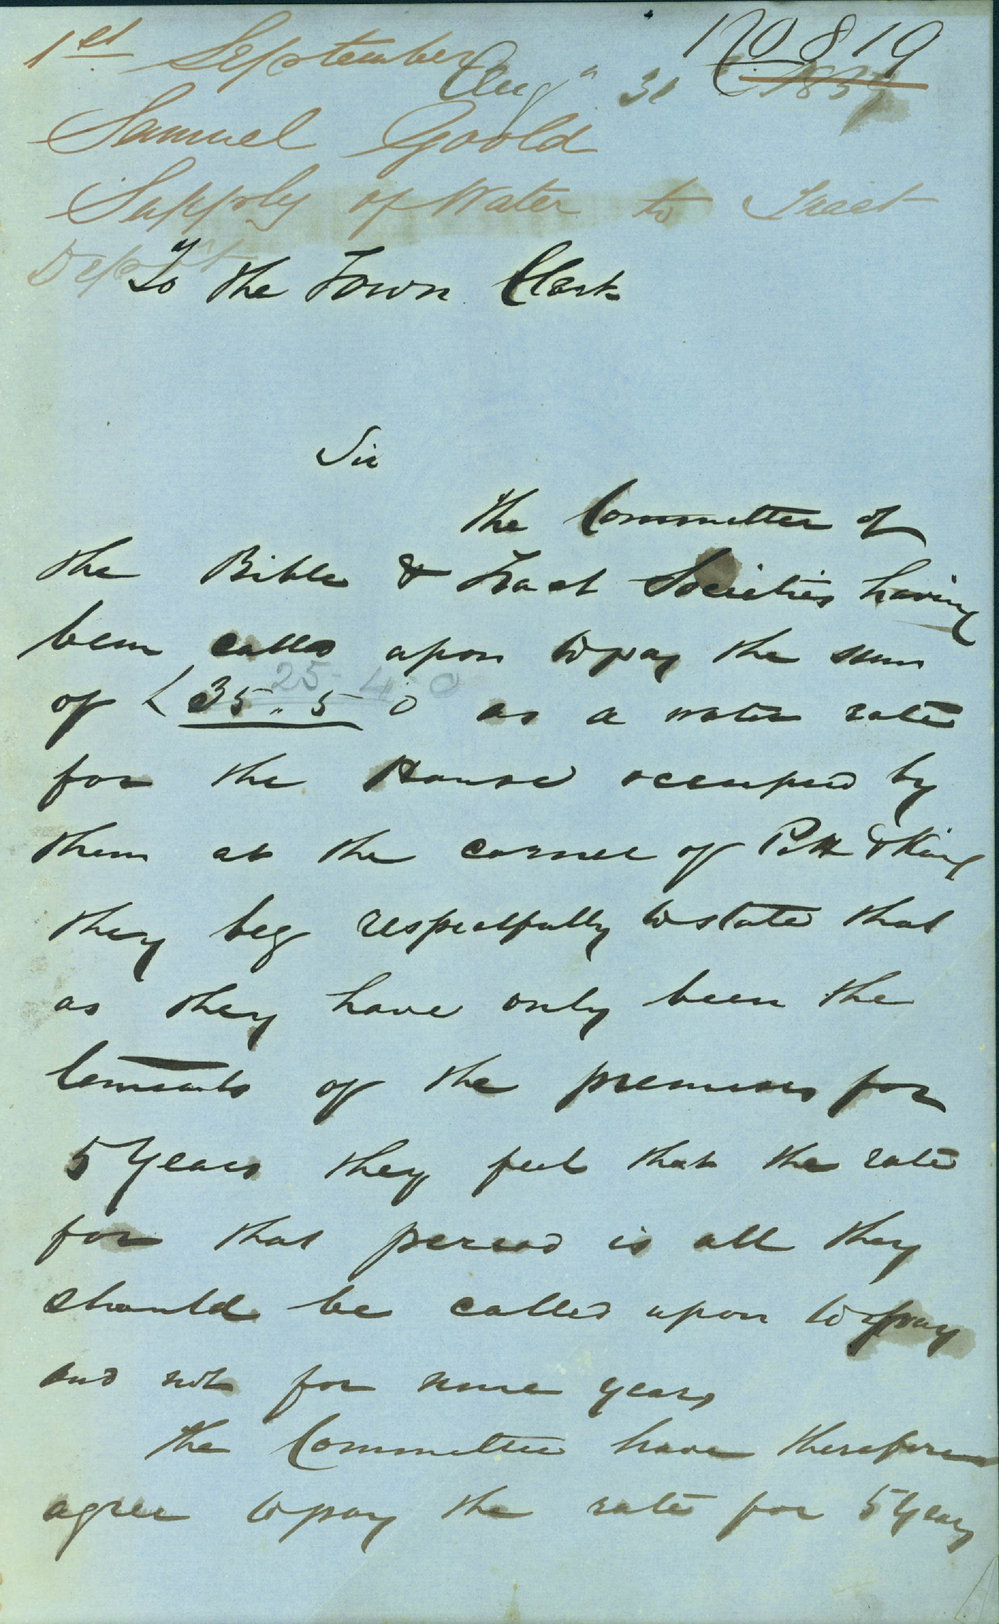 1st September
170819
Augst 31 1857
Samuel Goold
Supply of Water to Tract
Depôt
To the Town Clerk
Sir
the Committee of
the Bible & Tract Societies having
been called upon to pay the sum
25 4 0
of £35..5 0 as a water rate
for the House occupied by
them at the corner of Pitt & King
they beg respectfully to state that
as they have only been the
tenants of the premises for
5 Years they feel that the rate
for that period is all they
should be called upon to pay
and not for nine years
the Committee have therefore
agree to pay the rate for 5 Years